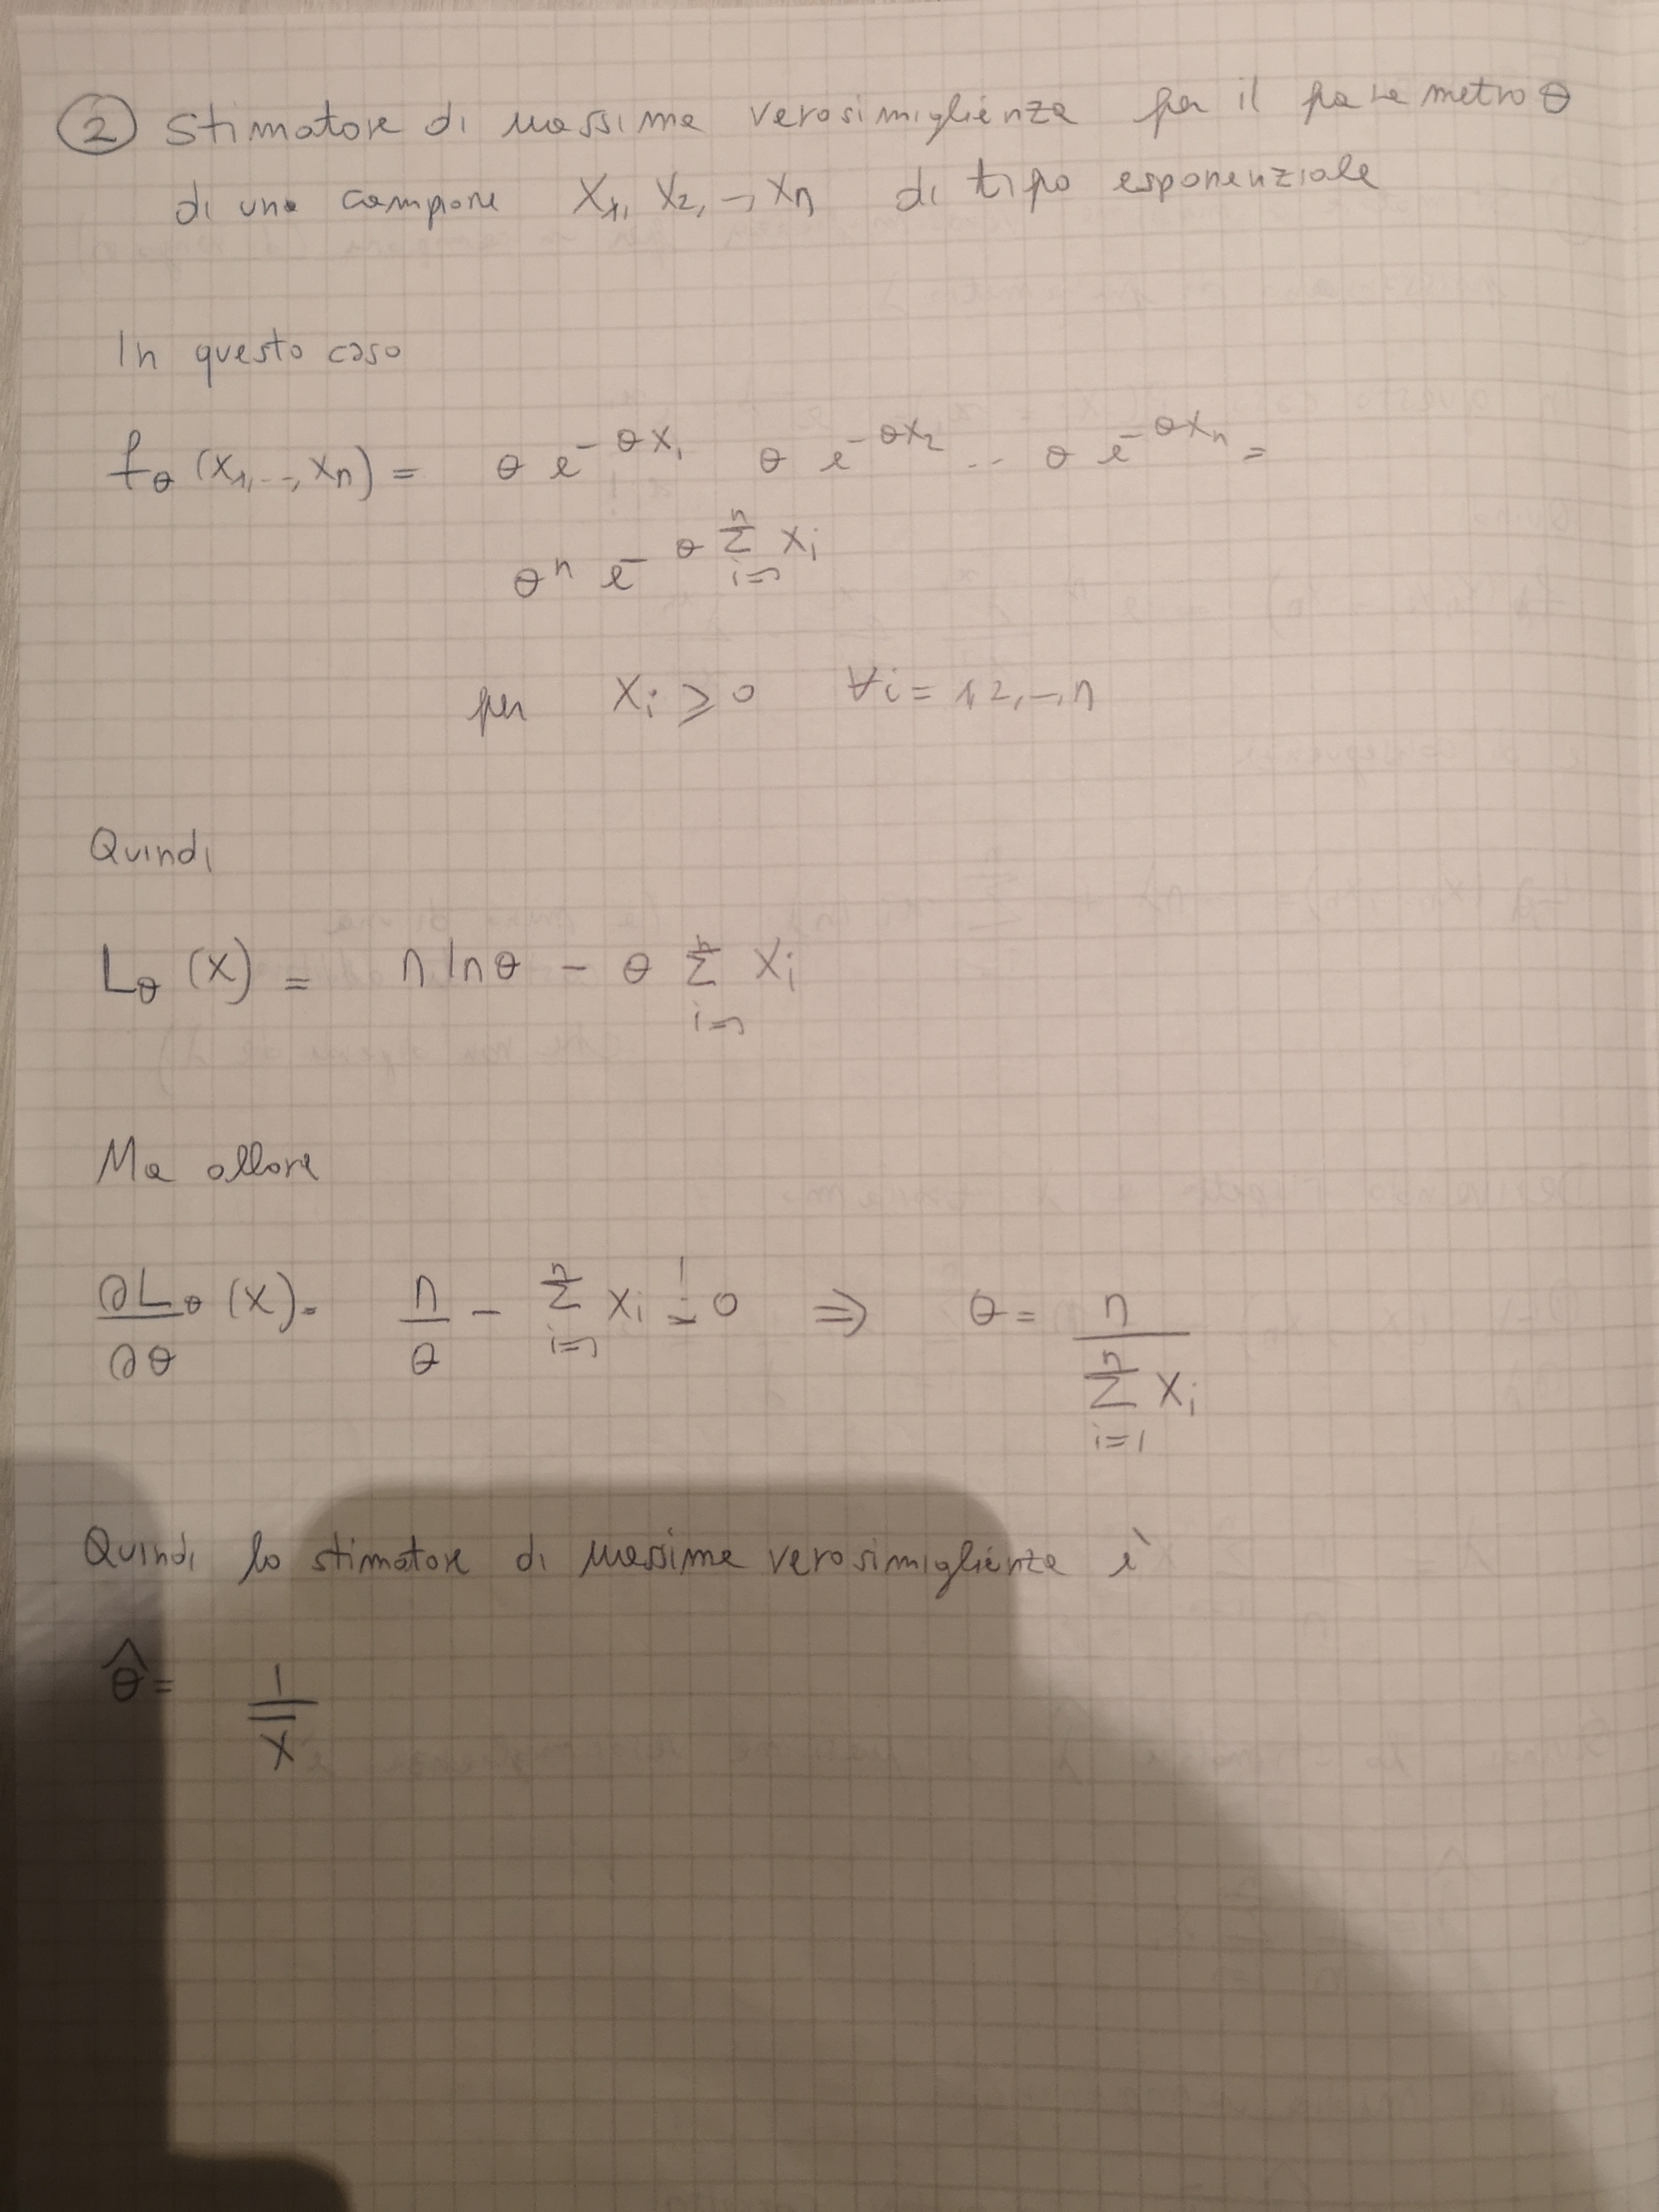 ② Stimatore di massima verosimiglianza per il parametro θ
di una campione X₁, X₂, -, Xn di tipo esponenziale
In questo caso
fθ (x₁, --, xn) = θ e^{-θx₁} θ e^{-θx₂} -- θ e^{-θxn} =
θⁿ e^{-θ Σ_{i=1}^{n} xi}
per xi ≥ 0 ∀i = 1, 2, -, n
Quindi
Lθ (x) = n ln θ - θ Σ_{i=1}^{n} xi
Ma allora
∂Lθ/∂θ (x) = n/θ - Σ_{i=1}^{n} xi =! 0 ⇒ θ = n / Σ_{i=1}^{n} xi
Quindi lo stimatore di massima verosimiglianza è
θ̂ = 1/x̄